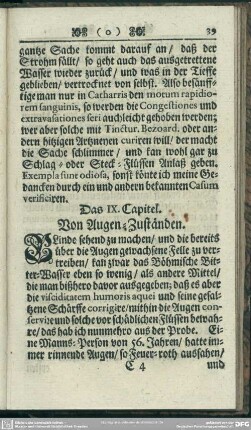 ( o ) 39
gantze Sache kommt darauf an / daß der
Strohm fällt / so geht auch das ausgetrettene
Wasser wieder zurück / und was in der Tieffe
geblieben / vertrocknet von selbst. Also besänff-
tige man nur in Catharris den motum rapidio-
rem sanguinis, so werden die Congestiones und
extravasationes seri auch leicht gehoben werden;
wer aber solche mit Tinctur. Bezoard. oder an-
dern hitzigen Artzneyen curiren will / der macht
die Sache schlimmer / und kan wohl gar zu
Schlag- oder Steck-Flüssen Anlaß geben.
Exempla sunt odiosa, sonst könte ich meine Ge-
dancken durch ein und andern bekannten Casum
verificiren.
Das IX. Capitel.
Von Augen-Zuständen.
Blinde sehend zu machen / und die bereits
über die Augen gewachsene Felle zu ver-
treiben / kan zwar das Böhmische Bit-
ter-Wasser eben so wenig / als andere Mittel /
die man bißhero davor ausgegeben; daß es aber
die visciditatem humoris aquei und seine gesal-
tzene Schärffe corrigire / mithin die Augen con-
servire und solche vor schädlichen Flüssen bewah-
re / das hab ich nunmehro aus der Probe. Ei-
ne Manns-Person von 56. Jahren / hatte im-
mer rinnende Augen / so Feuer-roth aussahen /
C 4 und